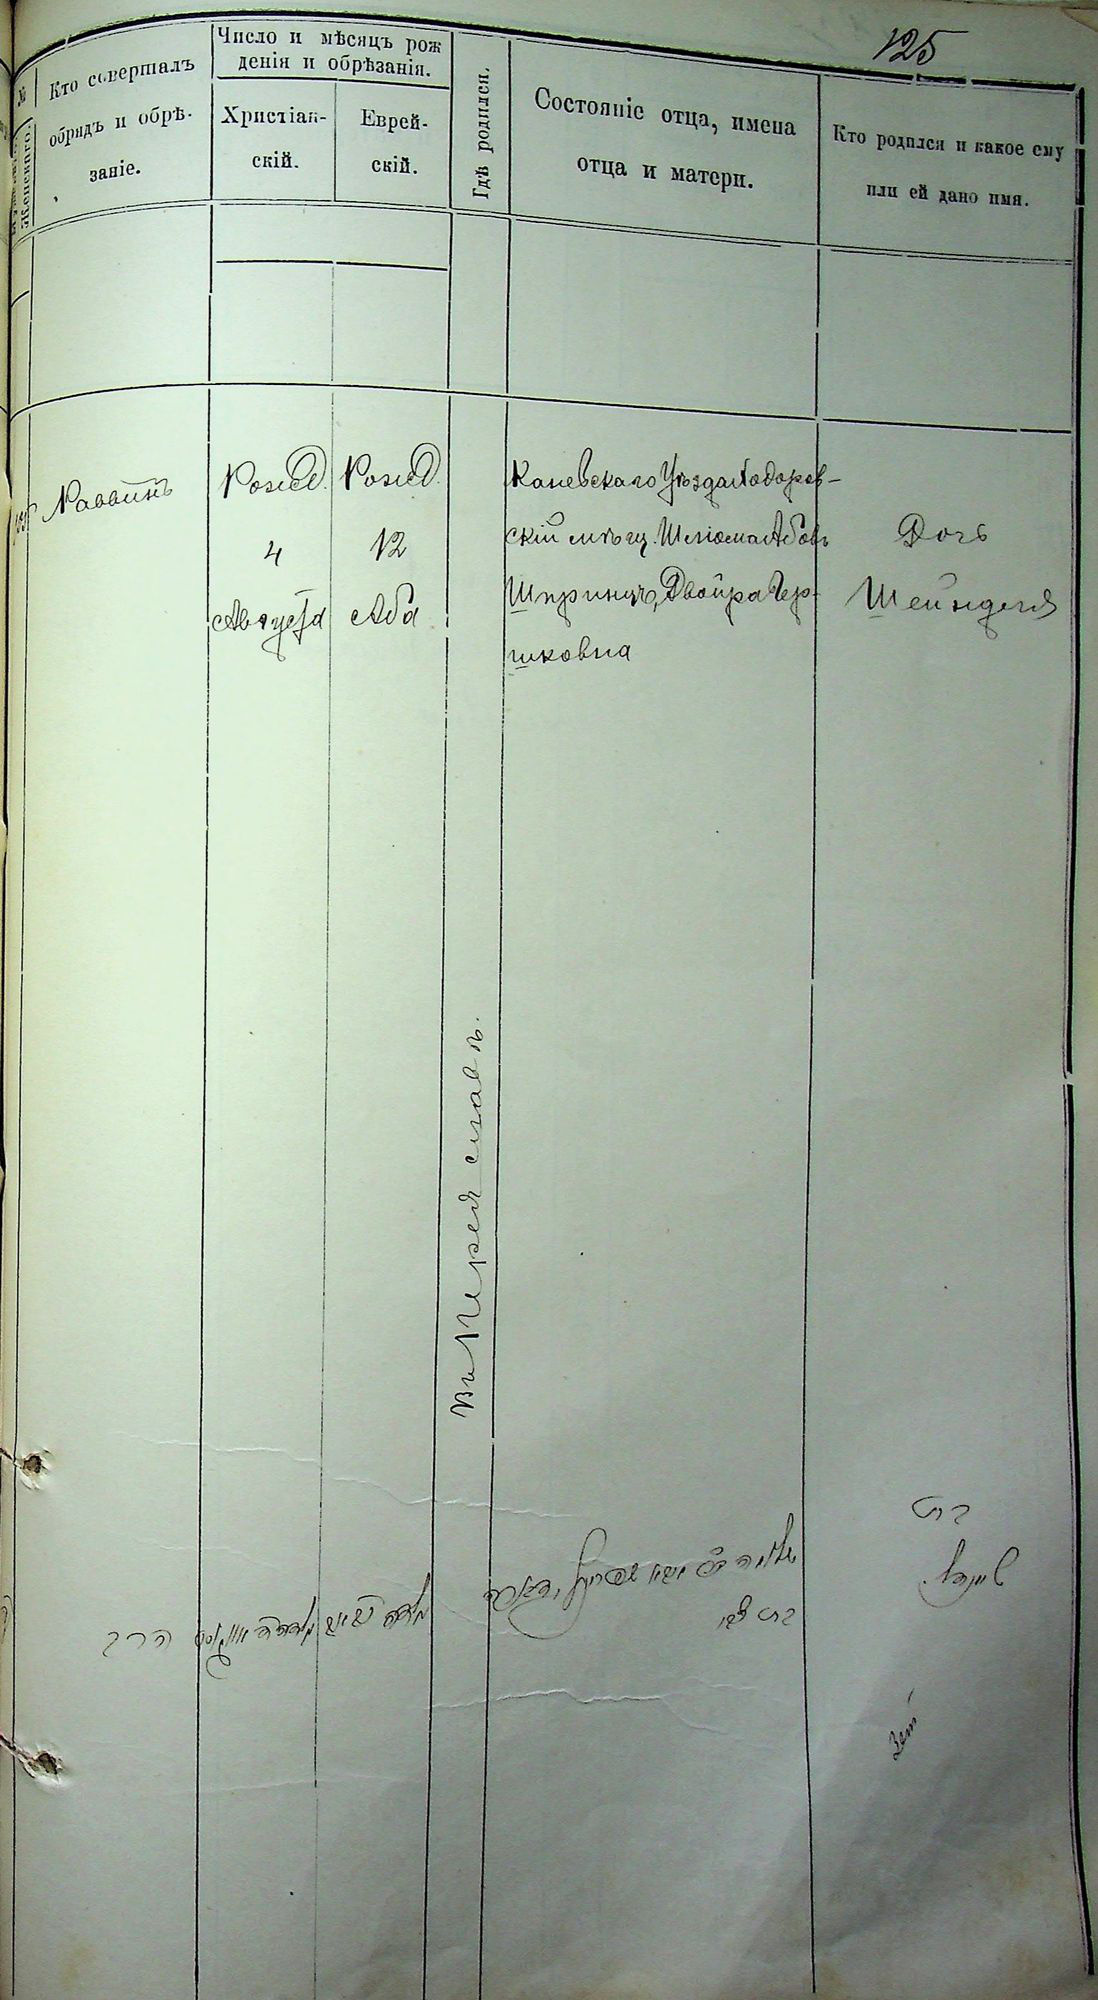 125
№
Женскаго.
Кто совершалъ
обрядъ и обрѣ-
заніе.
Число и мѣсяцъ рож
денія и обрѣзанія.
Христіан-
скій.
Еврей-
скій.
Гдѣ родился.
Состояніе отца, имена
отца и матери.
Кто родился и какое ему
или ей дано имя.
Раввинъ
Рожд.
4
Августа
Рожд.
12
Аба
Въ Переяславлѣ.
Каневскаго Уѣзда Ходоров-
скій мѣщ. Шлиома Абовъ
Шпринцъ, Двойра Гер-
шковна
Дочь
Шейндля
ברת
שיינדל
ברת צבי
הרב